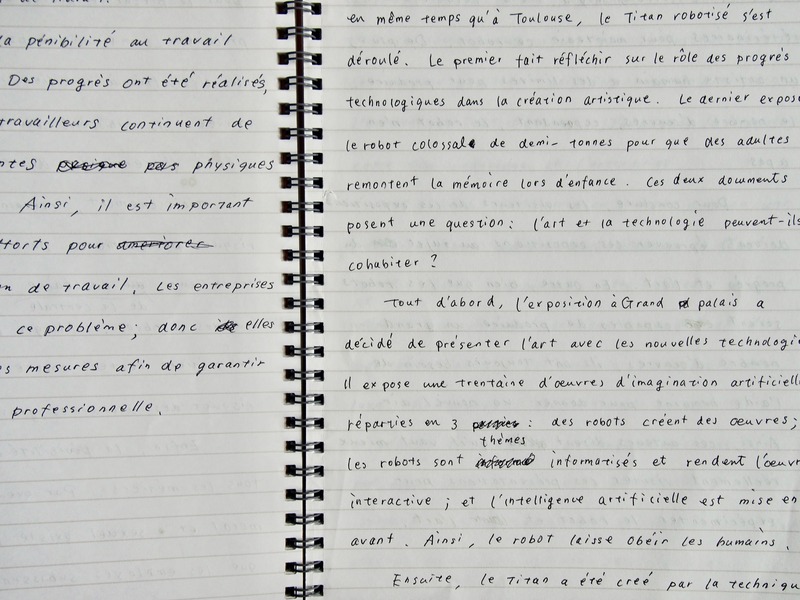 la pénibilité au travail
Des progrès ont été réalisés,
travailleurs continuent de
physiques
Ainsi, il est important
pour
de travail. Les entreprises
ce problème; donc elles
mesures afin de garantir
professionnelle.
en même temps qu'à Toulouse, le Titan robotisé s'est
déroulé. Le premier fait réfléchir sur le rôle des progrès
technologiques dans la création artistique. Le dernier expose
le robot colossale de demi-tonnes pour que des adultes
remontent la mémoire lors d'enfance. Ces deux documents
posent une question: l'art et la technologie peuvent-ils
cohabiter ?
Tout d'abord, l'exposition à Grand palais a
décidé de présenter l'art avec les nouvelles technologie
Il expose une trentaine d'œuvres d'imagination artificielle
réparties en 3 : des robots créent des oeuvres;
thèmes
les robots sont informatisés et rendent l'oeuvr
interactive ; et l'intelligence artificielle est mise en
avant. Ainsi, le robot laisse obéir les humains.
Ensuite, le Titan a été créé par la techniqu